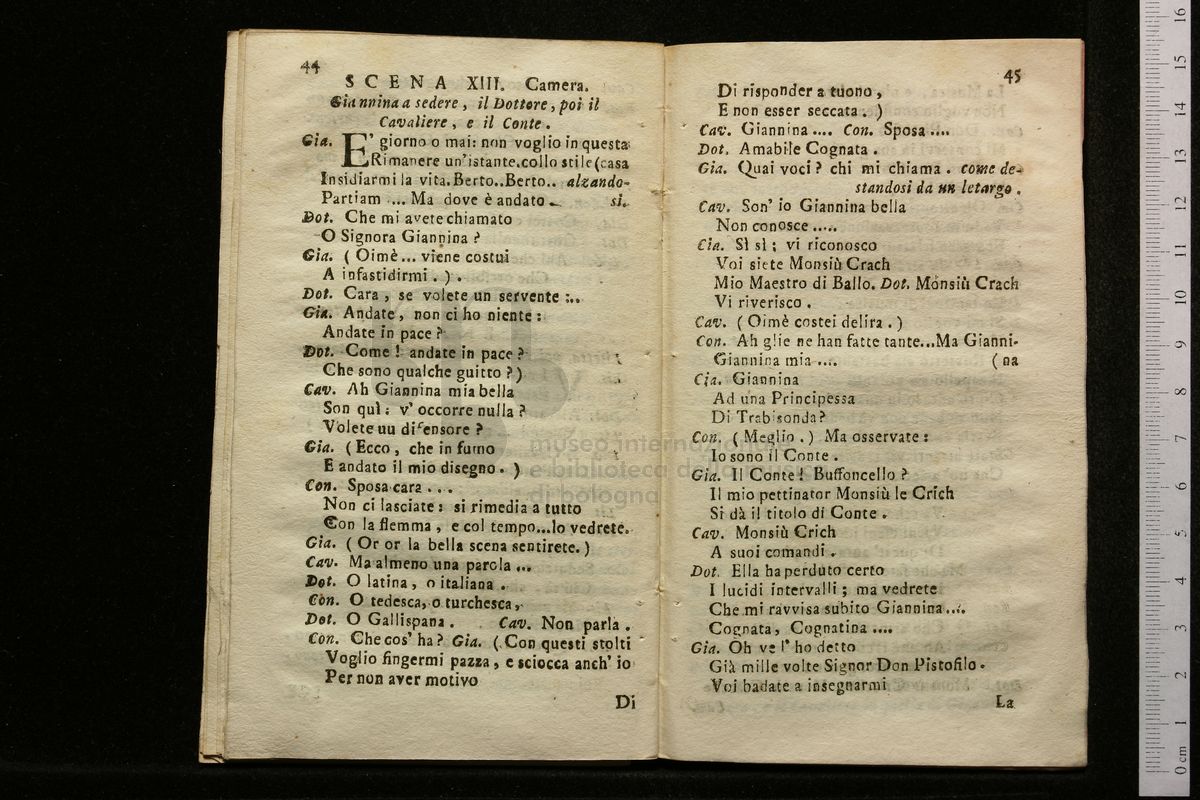 44
SCENA XIII. Camera.
Giannina a sedere, il Dottore, poi il
Cavaliere, e il Conte.
Gia. E' giorno o mai: non voglio in questa
Rimanere un'istante.collo stile (casa
Insidiarmi la vita. Berto..Berto.. alzando-
Partiam .... Ma dove è andato . si.
Dot. Che mi avete chiamato
O Signora Giannina ?
Gia. ( Oimè... viene costui
A infastidirmi . ) .
Dot. Cara , se volete un servente :..
Gia. Andate, non ci ho niente :
Andate in pace ?
Dot. Come ! andate in pace ?
Che sono qualche guitto ? )
Cav. Ah Giannina mia bella
Son quì : v' occorre nulla ?
Volete uu difensore ?
Gia. ( Ecco , che in fumo
E andato il mio disegno . )
Con. Sposa cara . . .
Non ci lasciate : si rimedia a tutto
Con la flemma , e col tempo...lo vedrete.
Gia. ( Or or la bella scena sentirete. )
Cav. Ma almeno una parola ...
Dot. O latina , o italiana .
Con. O tedesca, o turchesca,
Dot. O Gallispana . Cav. Non parla .
Con. Che cos' ha ? Gia. ( Con questi stolti
Voglio fingermi pazza , e sciocca anch' io
Per non aver motivo
Di
45
Di risponder a tuono ,
E non esser seccata . )
Cav. Giannina .... Con. Sposa ....
Dot. Amabile Cognata .
Gia. Quai voci ? chi mi chiama . come de-
standosi da un letargo .
Cav. Son' io Giannina bella
Non conosce .....
Gia. Sì sì ; vi riconosco
Voi siete Monsiù Crach
Mio Maestro di Ballo. Dot. Monsiù Crach
Vi riverisco .
Cav. ( Oimè costei delira . )
Con. Ah glie ne han fatte tante...Ma Gianni-
Giannina mia .... (na
Gia. Giannina
Ad una Principessa
Di Trabisonda ?
Con. ( Meglio . ) Ma osservate :
Io sono il Conte .
Gia. Il Conte ! Buffoncello ?
Il mio pettinator Monsiù le Crich
Si dà il titolo di Conte .
Cav. Monsiù Crich
A suoi comandi .
Dot. Ella ha perduto certo
I lucidi intervalli ; ma vedrete
Che mi ravvisa subito Giannina....
Cognata, Cognatina ....
Gia. Oh ve l' ho detto
Già mille volte Signor Don Pistofilo .
Voi badate a insegnarmi
La
museo internazionale
e biblioteca della musica
di bologna
0 cm 1 2 3 4 5 6 7 8 9 10 11 12 13 14 15 16